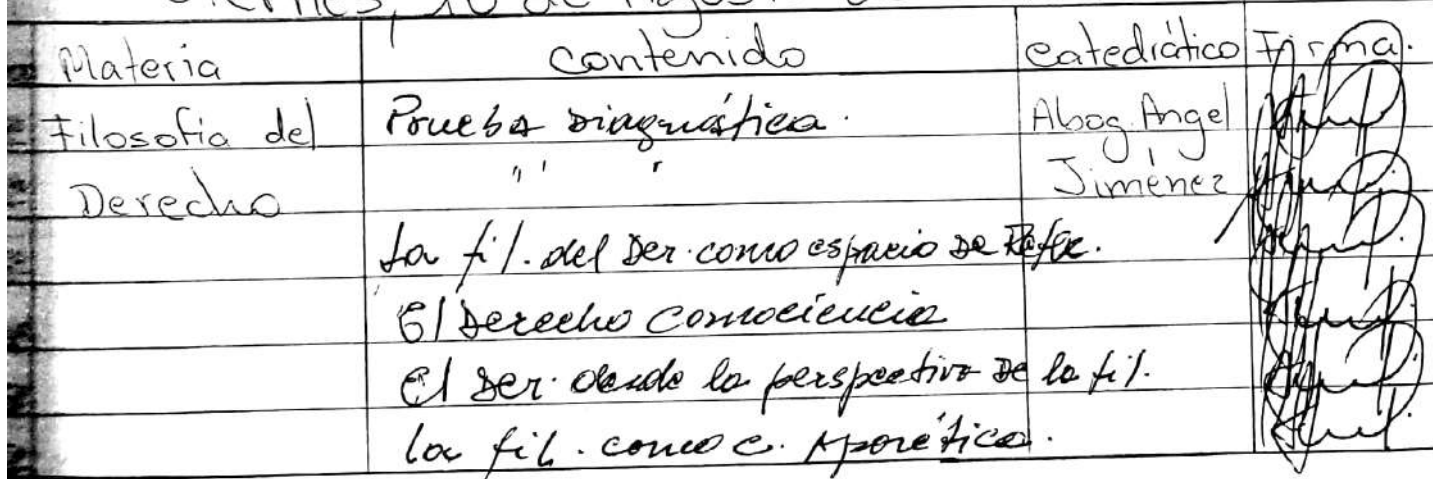 Viernes, 10 de Agosto
Materia contenido catedrático Firma.
Filosofía del Prueba Diagnóstica. Abog. Angel
Derecho " " " Jimenez
La fil. del Der. como espacio De Reflex.
El Derecho como ciencia
El Der. desde la perspectiva De la fil.
la fil. como c. Aporética.